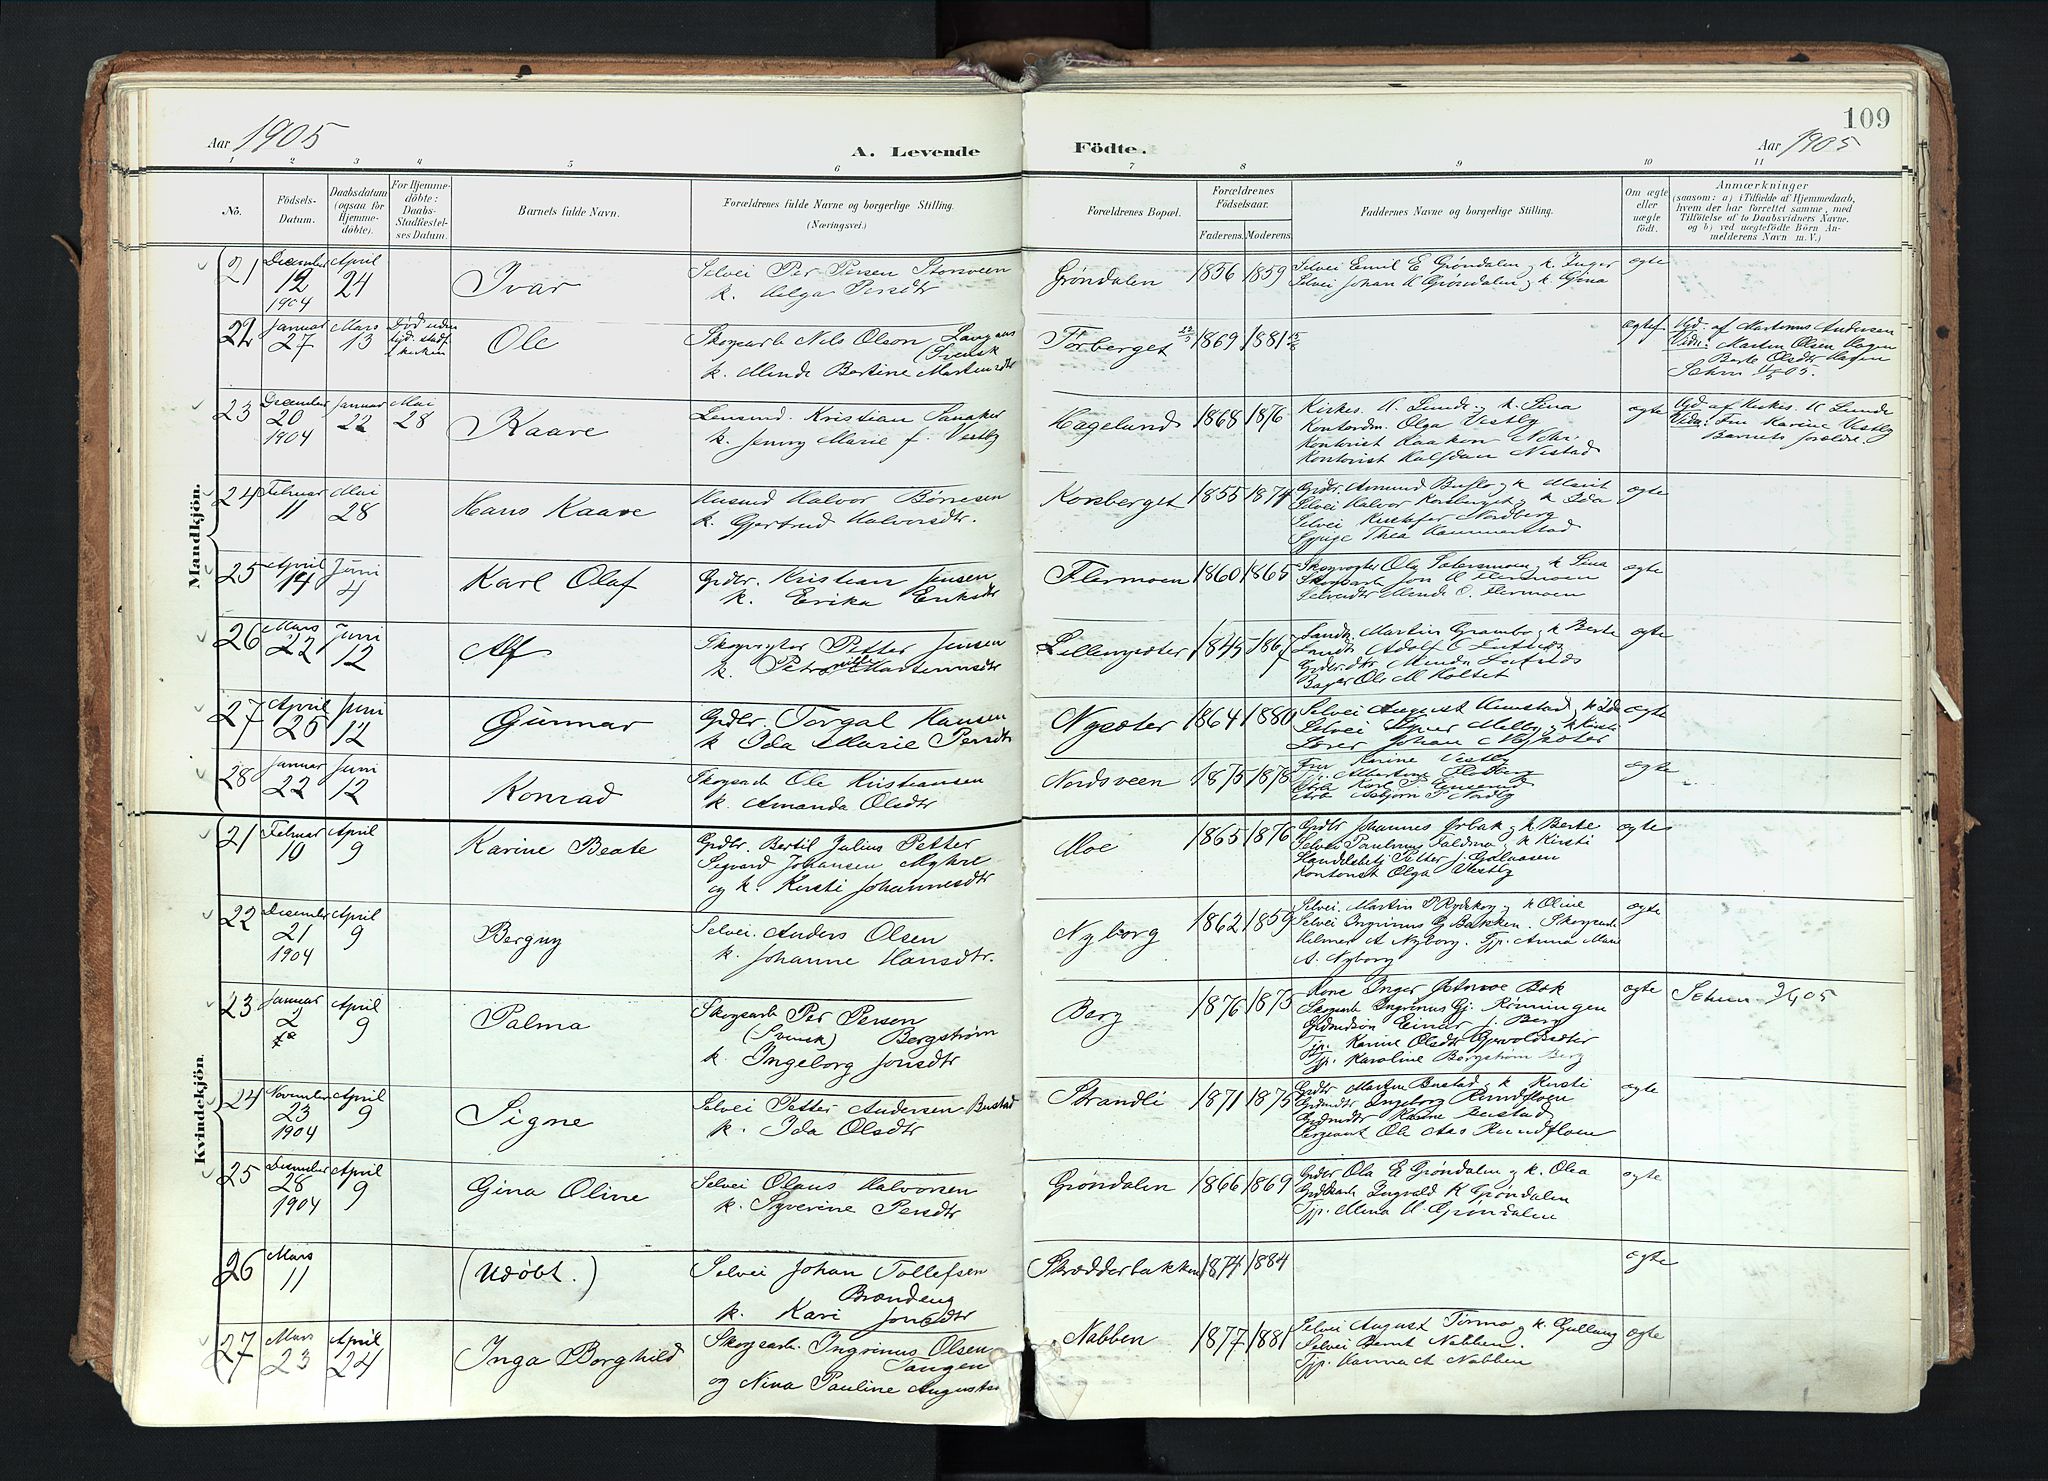 109
Aar 1905
A. Levende
Födte.
Aar 1905
1 2 3 4 5 6 7 8 9 10 11
No.
Födsels-
Datum.
Daabsdatum
(ogsaa for
Hjemme-
döbte).
For Hjemme-
döbte:
Daabs-
Stadfæstel-
ses Datum.
Barnets fulde Navn.
Forældrenes fulde Navne og borgerlige Stilling.
(Næringsvei.)
Forældrenes Bopæl.
Forældrenes
Födselsaar.
Faderens. Moderens.
Faddernes Navne og borgerlige Stilling.
Om ægte
eller
uægte
födt.
Anmærkninger
(saasom: a) i Tilfælde af Hjemmedaab,
hvem der har forrettet samme, med
Tilföielse af to Daabsvidners Navne.
og b) ved uægtefödte Börn An-
melderens Navn m. V.)
Mandkjön.
21 December 12 1904 April 24
Ivar
Selvei Per Persen Storsveen
k. Helga Persdtr
Grøndalen 1856 1859
Selvei Emil E Grøndalen og k. Inger
Selvei Johan H Grøndalen og k Gina
ægte
22 Januar 27 Mars 13
Død uden
Ole
Skogsarb Nils Olson
(Svensk
k. Minde Bertine Martinsdtr
Forberget 1869 1881
ægtef
af Martinus Andersen
Vidn: Martin Olsen Hagen
Berte Olsdtr Hagen
23 December 20 1904 Januar 22 Mai 28
Kaare
Lensmd. Kristian Sanaker
k. Jenny Marie f. Vestby
Hagelund 1868 1876
Kirkes. H Lunde og k. Lina
Olga Vestby
Kontorist Haakon
Kontorist Halfdan Nestad
ægte
af Kirkes. H Lunde
Vidn: Fru Karine Vestby
Barnets forældre.
24 Februar 11 Mai 28
Hans Kaare
Husmd Halvor Børresen
k. Gjertrud Halvorsdtr.
Korsberget 1855 1874
Selvei Halvor Korsberget og k Ida
Selvei Kristofer Nordberg
Thea Kammerstad
ægte
25 April 14 Juni 4
Karl Olaf
Grdbr. Kristian Jensen
k. Erika Eriksdtr
Flermoen 1860 1865
Skogvogter Ole Sætersmoen og k Lina
Skogsarb Jon H Flermoen
ægte
26 Mars 22 Juni 12
Alf
Skogvogter Petter Jensen
k. Petronille Martinusdtr
Lillemæter 1845 1867
Martin Grambo og k Berte
ægte
27 April 25 Juni 12
Gunnar
Grdbr. Torgal Hansen
k Ida Marie Persdtr
Nysæter 1864 1880
Lærer Johan Nysæter
ægte
28 Januar 22 Juni 12
Konrad
Skogsarb Ole Kristiansen
k. Amanda Olsdtr
Nordsveen 1875 1878
Fru Karine Vestby
ægte
Kvindekjön.
21 Februar 10 April 9
Karine Beate
Grdbr. Bertil Julius Petter
Sigvard Johansen Myhre
og k. Kirsti Johannesdtr
Moe 1865 1876
Grdbr Johannes Ørbak og k Berte
Selvei Paulinus Faldmo og k Kirsti
Kontorist Olga Vestby
ægte
22 December 21 1904 April 9
Bergny
Selvei. Anders Olsen
k. Johanne Hansdtr.
Nyborg 1862 1859
Selvei. Martin P Rydskog og k Oline
Selvei Ingrinus G Bakken. Skogsarb
Helmer A Nyborg. Tjp. Anna Marie
A. Nyborg
ægte
23 Januar 2 April 9
Palma
Skogsarb Per Persen
(Svensk) Bergstrøm
k. Ingeborg Jonsdtr
Berg 1876 1875
Kone Inger Bak
Skogsarb Ingrinus Gj. Rønningen
Einar J. Berg
Tjp. Karine Olsdtr Gjervoldsæter
Tjp. Karoline Bergstrøm Berg
ægte
24 November 23 1904 April 9
Signe
Selvei Petter Andersen Bustad
k. Ida Olsdtr
Strandli 1871 1875
Grdbr Martin Bustad og k Kirsti
Ingeborg Rundfloen
Karine Bustad
Sergeant Ole Aas Rundfloen
ægte
25 December 28 1904 April 9
Gina Oline
Selvei Olaus Halvorsen
k. Syverine Persdtr
Grøndalen 1866 1869
Grdbr Ola E Grøndalen og k. Olea
Ingvald K Grøndalen
Tjp. Mina H Grøndalen
ægte
26 Mars 11
(Udøbt.)
Selvei Johan Tollefsen
Brændeng
k. Kari Jonsdtr
Skrædderbakken 1874 1884
ægte
27 Mars 23 April 24
Inga Borghild
Skogsarb. Ingrinus Olsen
Tangen
og Nina Pauline Augustsd
Nabben 1877 1881
Selvei August Tørmo og k. Gullaug
Selvei Bernt Nabben.
Tjp. Hanna A Nabben
ægte